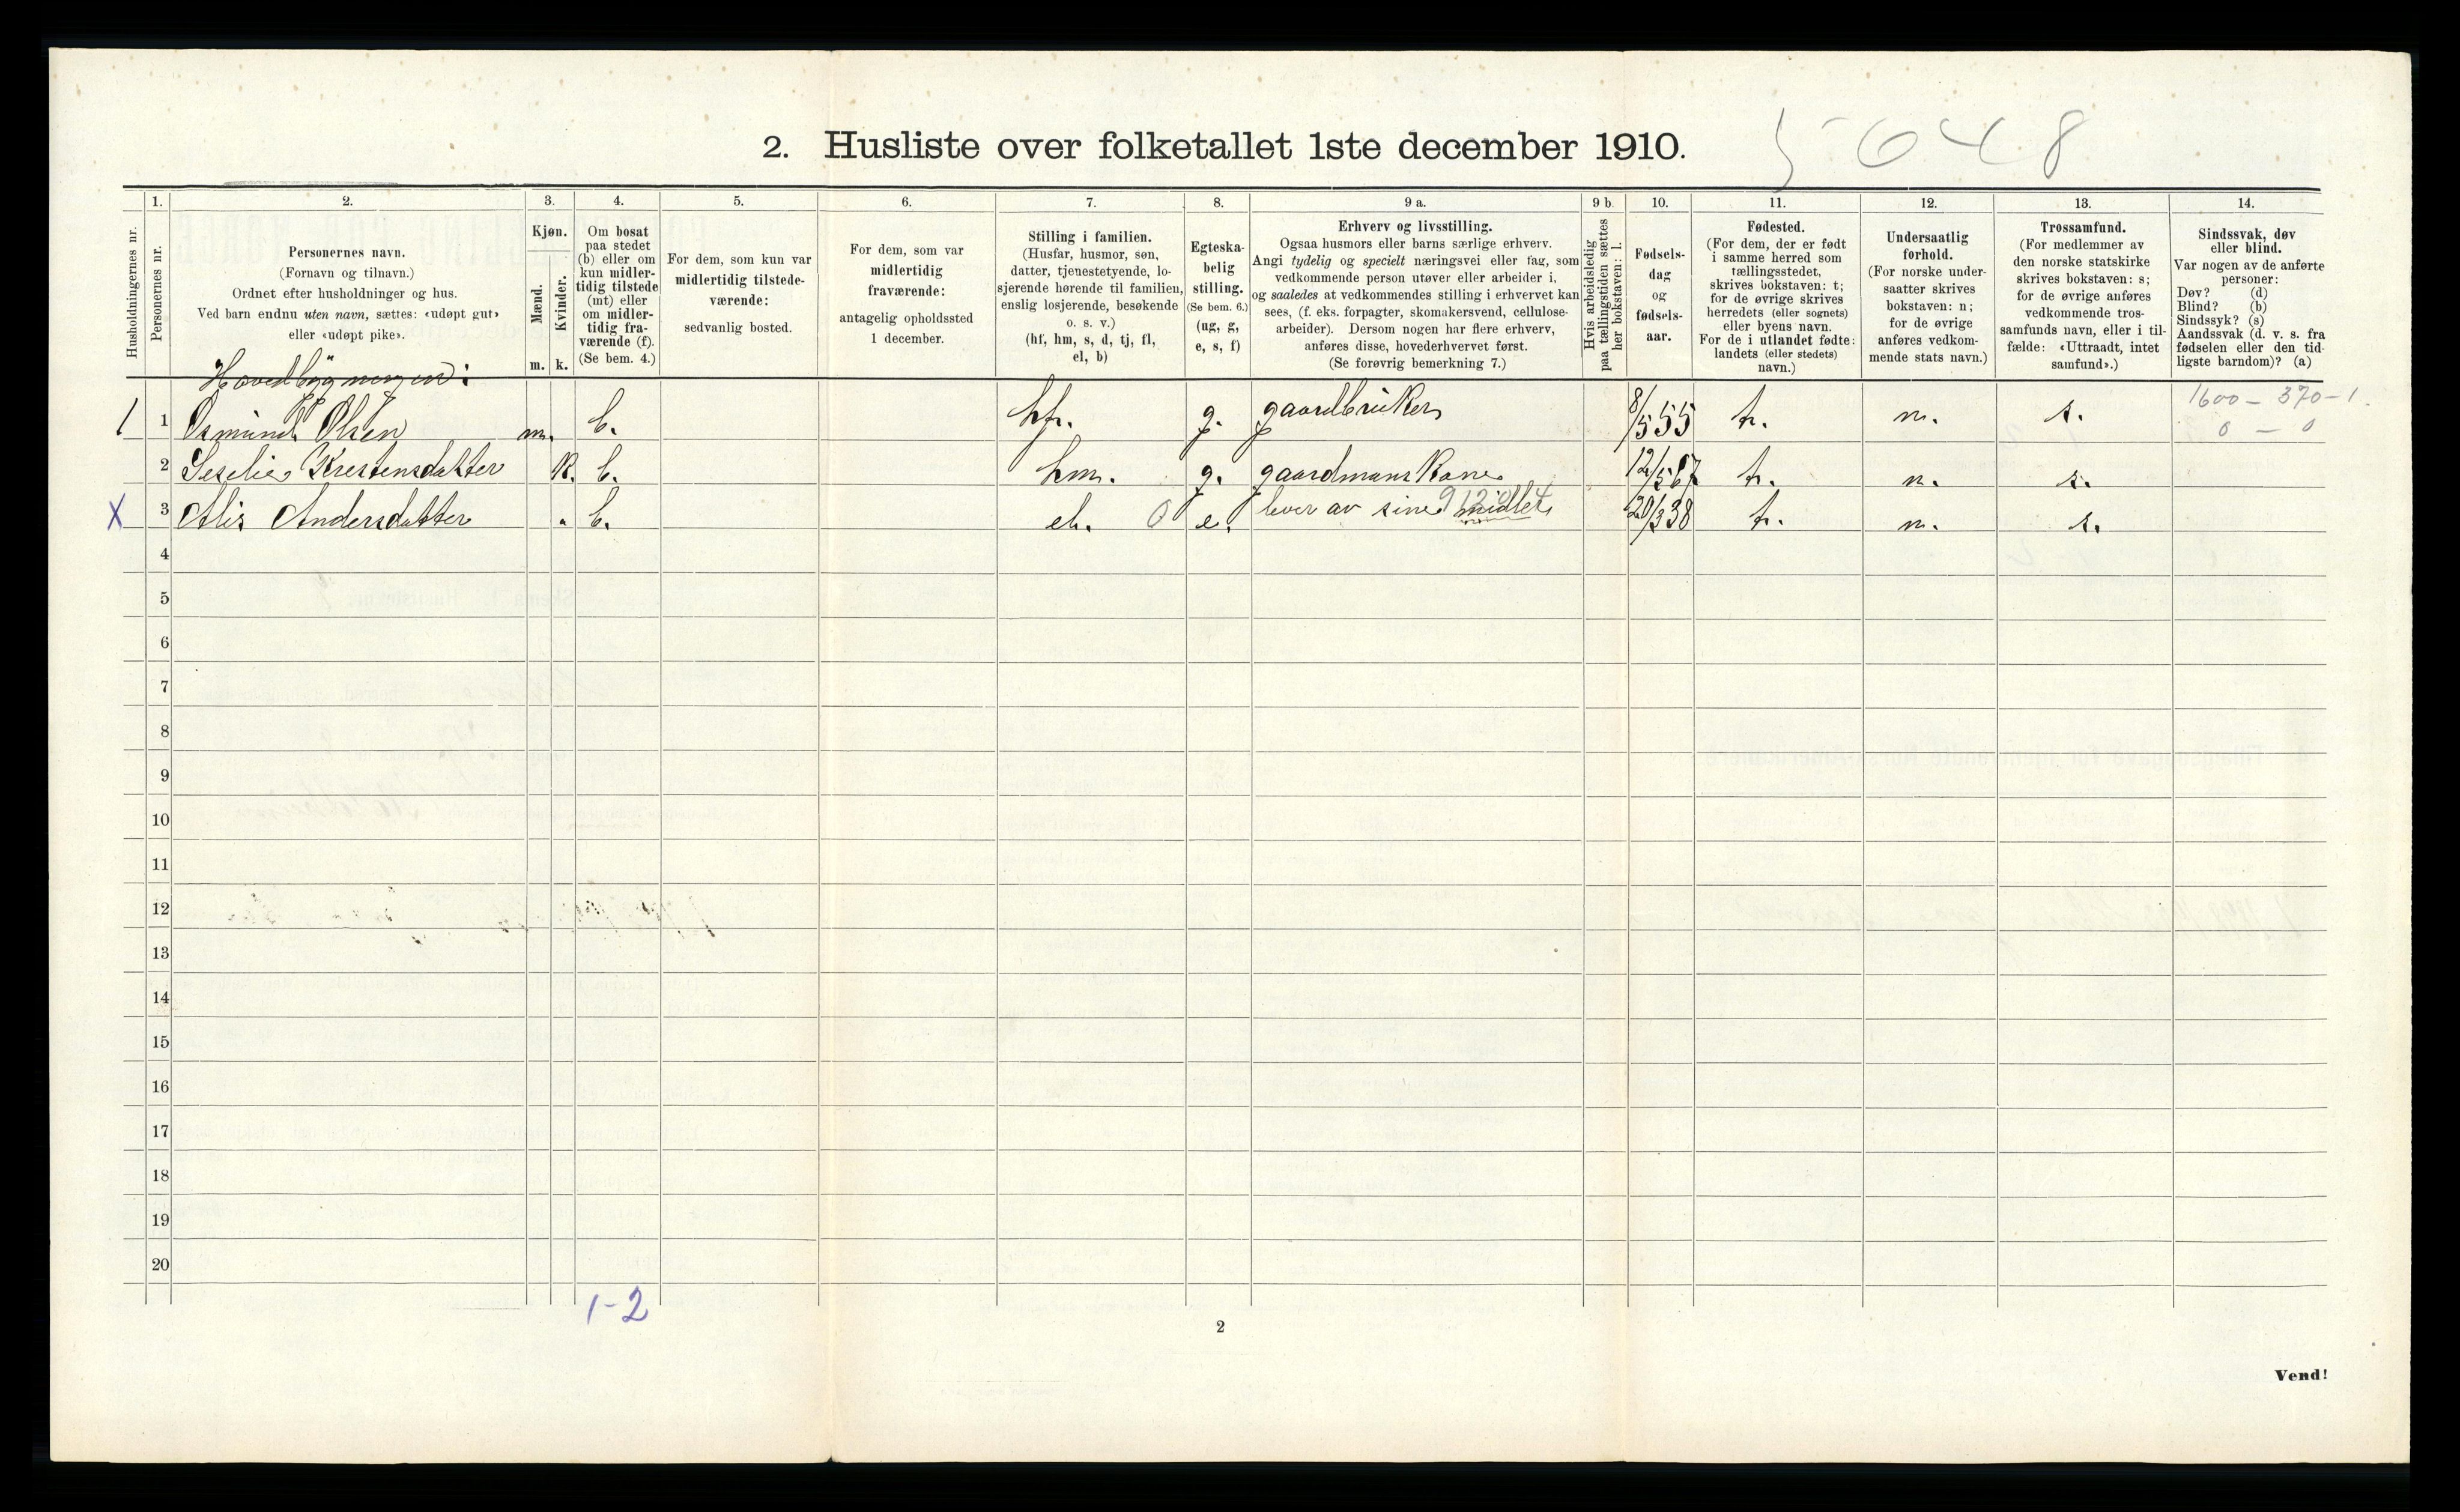 2. Husliste over folketallet 1ste december 1910.
5648
Husholdningernes nr.
1. Personernes nr.
2. Personernes navn.
(Fornavn og tilnavn.)
Ordnet efter husholdninger og hus.
Ved barn endnu uten navn, sættes: «udøpt gut»
eller «udøpt pike».
3. Kjøn.
Mænd. m.
Kvinder. k.
4. Om bosat
paa stedet
(b) eller om
kun midler-
tidig tilstede
(mt) eller
om midler-
tidig fra-
værende (f).
(Se bem. 4.)
5. For dem, som kun var
midlertidig tilstede-
værende:
sedvanlig bosted.
6. For dem, som var
midlertidig
fraværende:
antagelig opholdssted
1 december.
7. Stilling i familien.
(Husfar, husmor, søn,
datter, tjenestetyende, lo-
sjerende hørende til familien,
enslig losjerende, besøkende
o. s. v.)
(hf, hm, s, d, tj, fl,
el, b)
8. Egteska-
belig
stilling.
(Se bem. 6.)
(ug, g,
e, s, f)
9 a. Erhverv og livsstilling.
Ogsaa husmors eller barns særlige erhverv.
Angi tydelig og specielt næringsvei eller fag, som
vedkommende person utøver eller arbeider i,
og saaledes at vedkommendes stilling i erhvervet kan
sees, (f. eks. forpagter, skomakersvend, cellulose-
arbeider). Dersom nogen har flere erhverv,
anføres disse, hovederhvervet først.
(Se forøvrig bemerkning 7.)
9 b. Hvis arbeidsledig
paa tællingstiden sættes
her bokstaven: l.
10. Fødsels-
dag
og
fødsels-
aar.
11. Fødested.
(For dem, der er født
i samme herred som
tællingsstedet,
skrives bokstaven: t;
for de øvrige skrives
herredets (eller sognets)
eller byens navn.
For de i utlandet fødte:
landets (eller stedets)
navn.)
12. Undersaatlig
forhold.
(For norske under-
saatter skrives
bokstaven: n;
for de øvrige
anføres vedkom-
mende stats navn.)
13. Trossamfund.
(For medlemmer av
den norske statskirke
skrives bokstaven: s;
for de øvrige anføres
vedkommende tros-
samfunds navn, eller i til-
fælde: «Uttraadt, intet
samfund».)
14. Sindssvak, døv
eller blind.
Var nogen av de anførte
personer:
Døv? (d)
Blind? (b)
Sindssyk? (s)
Aandssvak (d. v. s. fra
fødselen eller den tid-
ligste barndom)? (a)
Hovedbygningen:
1600 - 370 - 1
0 - 0
1 1 Osmund Olsen m. b. hf. g. gaardbruker 8/5 55 t. n. s.
2 Seselie Krestensdatter k. b. hm. g. gaardmans kone 12/5 67 t. n. s.
X 3 Alis Andersdatter " b. el. 0 e. lever av sine midler 912 20/3 38 t. n. s.
4
5
6
7
8
9
10
11
12
13
14
15
16
17
18
19
20
1-2
2
Vend!